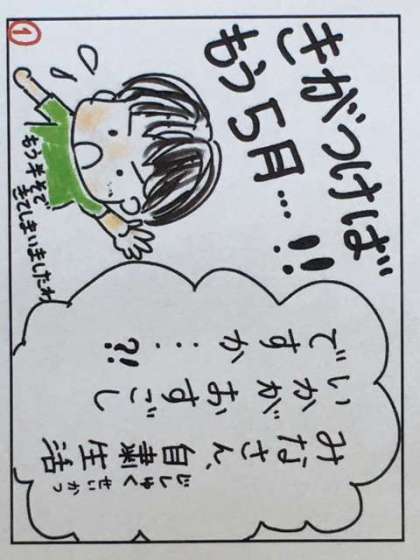 ①
きがつけば
もう5月…!!
もう半そで
きてしまいましたわ
みなさん、自粛生活
じしゅくせいかつ
いかがおすごし
ですか…?!